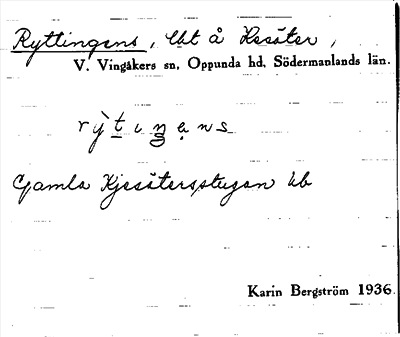 Ryttingens, lht å Kesäter,
V. Vingåkers sn, Oppunda hd, Södermanlands län.
rỳt ıŋẹns
Gamla Kjesätersstugan lb
Karin Bergström 1936.